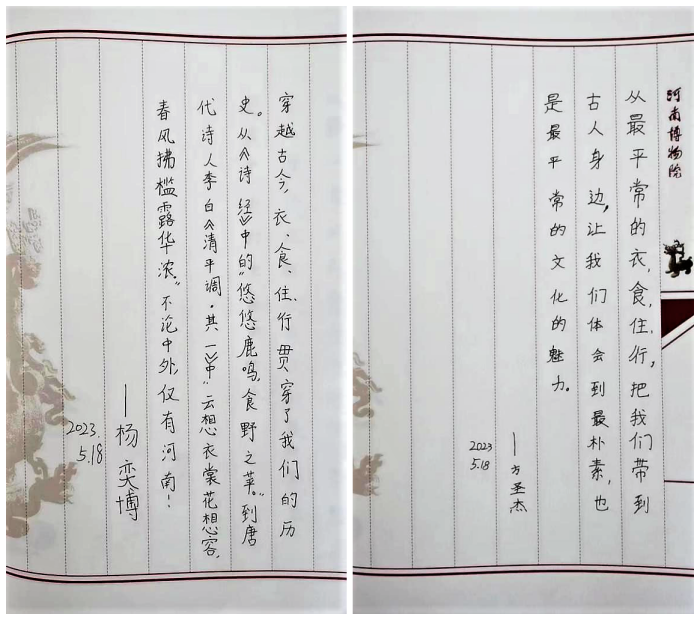 穿越古今，衣、食、住、行贯穿了我们的历
史。从《诗经》中的“悠悠鹿鸣，食野之苹。”到唐
代诗人李白《清平调·其一》中“云想衣裳花想容，
春风拂槛露华浓。”不论中外，仅有河南！
—杨奕博
2023.
5.18
河南博物院
从最平常的衣，食，住，行，把我们带到
古人身边，让我们体会到最朴素，也
是最平常的文化的魅力。
—方圣杰
2023
5.18